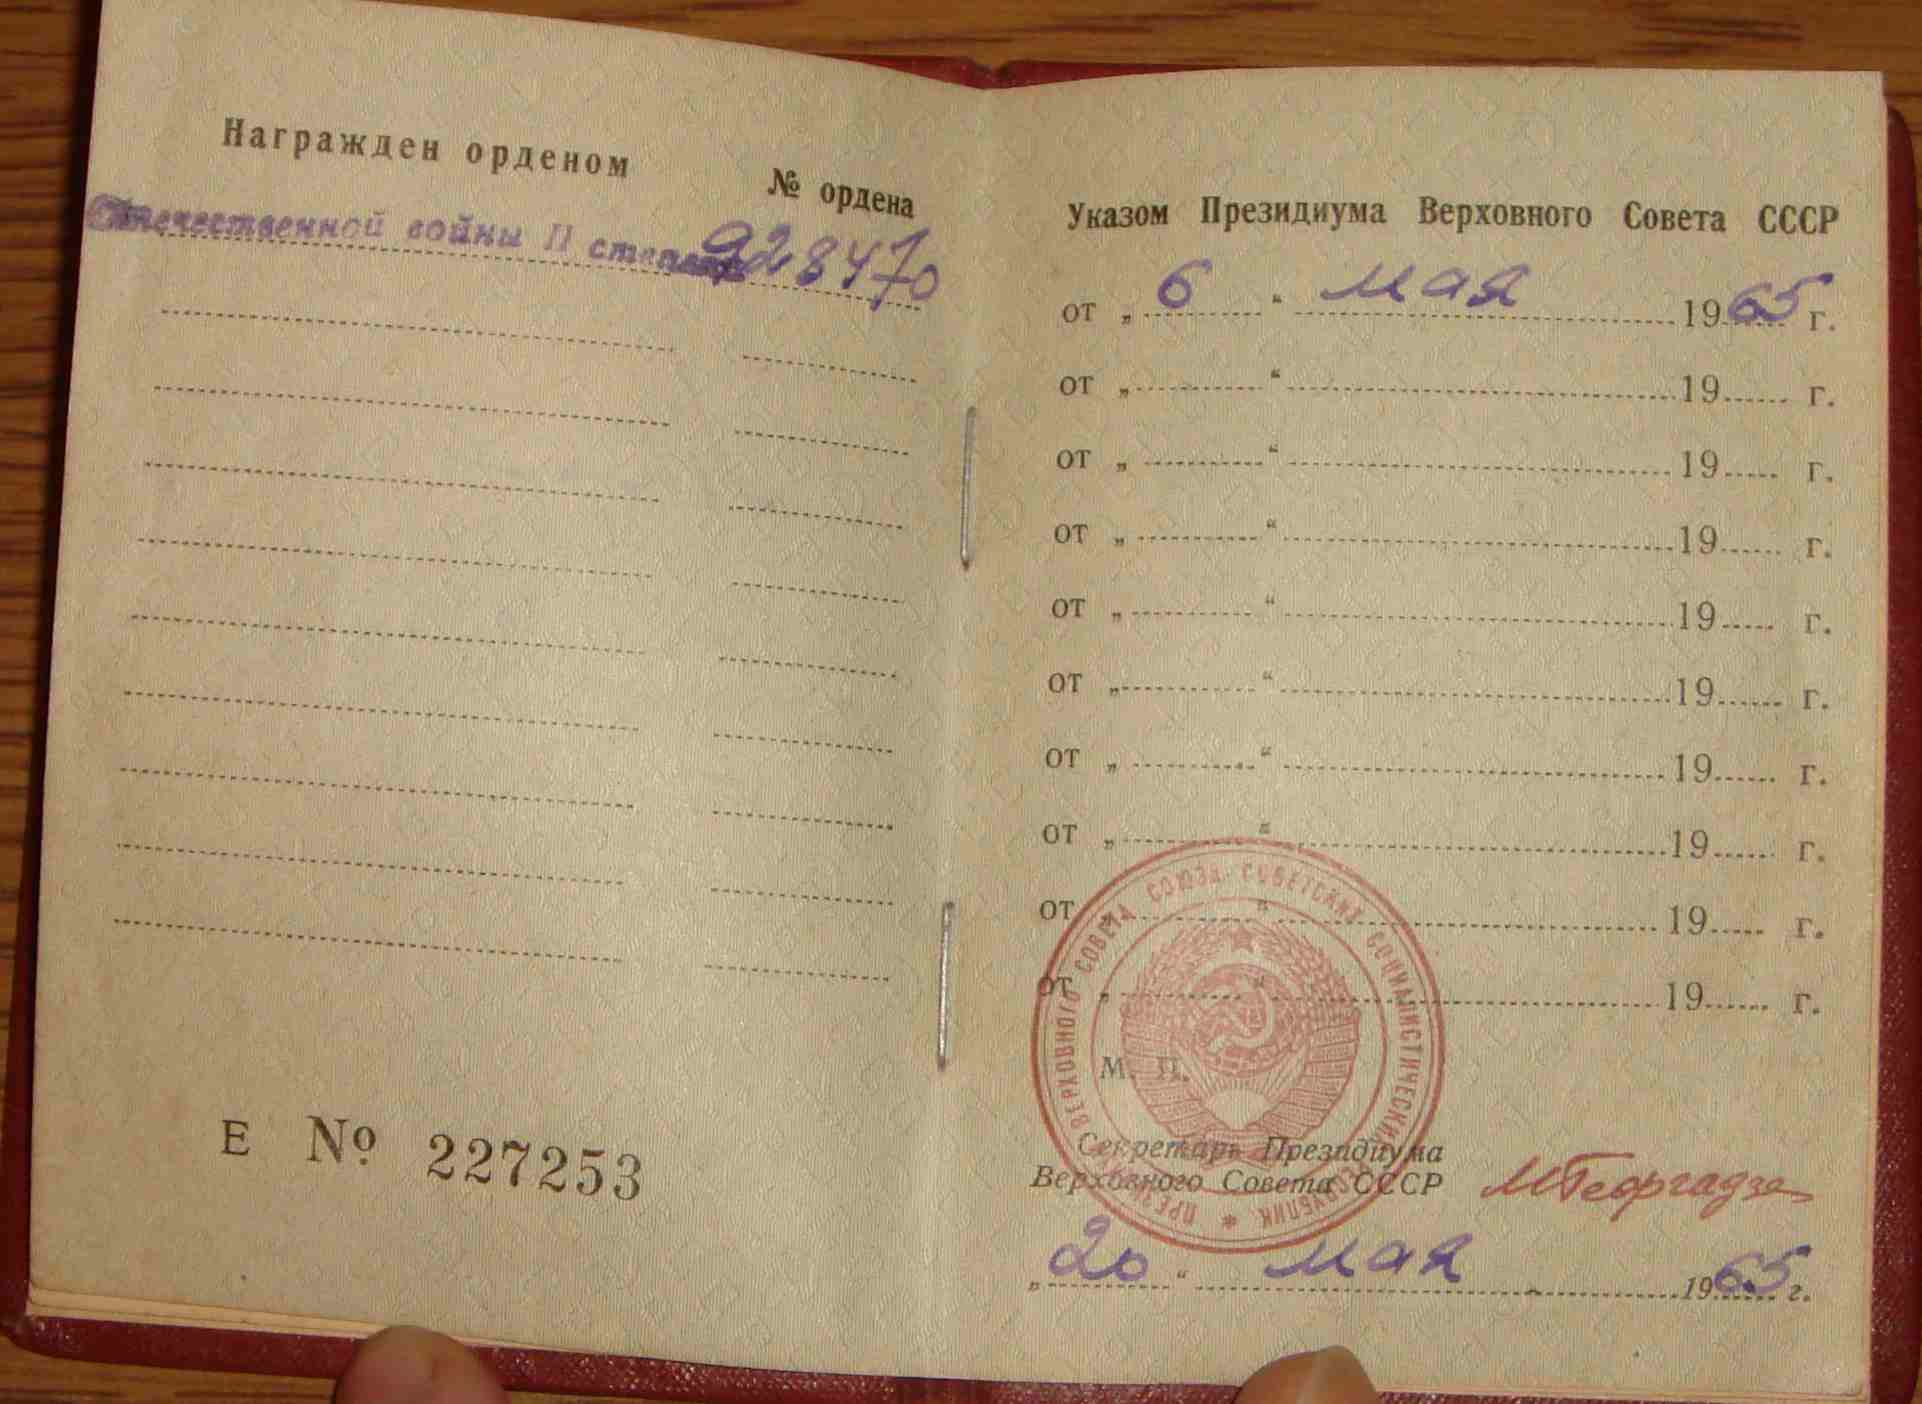 Награжден орденом
№ ордена
Отечественной войны II степени 928470
Е № 227253
Указом Президиума Верховного Совета СССР
от „ 6 “ мая 1965 г.
от „ “ 19 г.
от „ “ 19 г.
от „ “ 19 г.
от „ “ 19 г.
от „ “ 19 г.
от „ “ 19 г.
от „ “ 19 г.
от „ “ 19 г.
от „ “ 19 г.
М. П.
ПРЕЗИДИУМ ВЕРХОВНОГО СОВЕТА СОЮЗА СОВЕТСКИХ СОЦИАЛИСТИЧЕСКИХ РЕСПУБЛИК
Секретарь Президиума
Верховного Совета СССР
МГеоргадзе
„ 20 “ мая 1965 г.